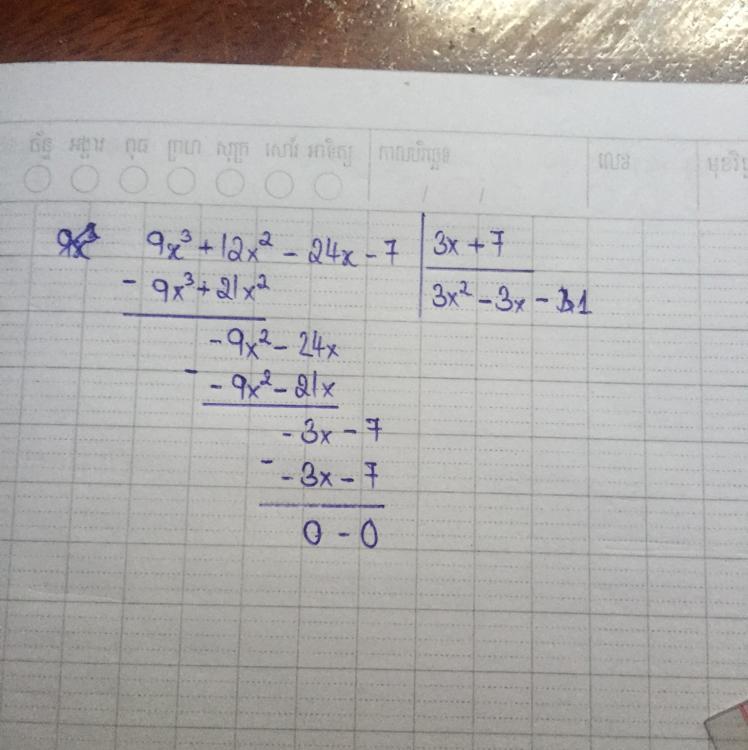 ច័ន្ទ អង្គារ ពុធ ព្រហ សុក្រ សៅរ៍ អាទិត្យ កាលបរិច្ឆេទ លេខ
/ /
9x³ + 12x² - 24x - 7 3x + 7
- 9x³ + 21x² 3x² - 3x - 1
- 9x² - 24x
- - 9x² - 21x
- 3x - 7
- - 3x - 7
0 - 0